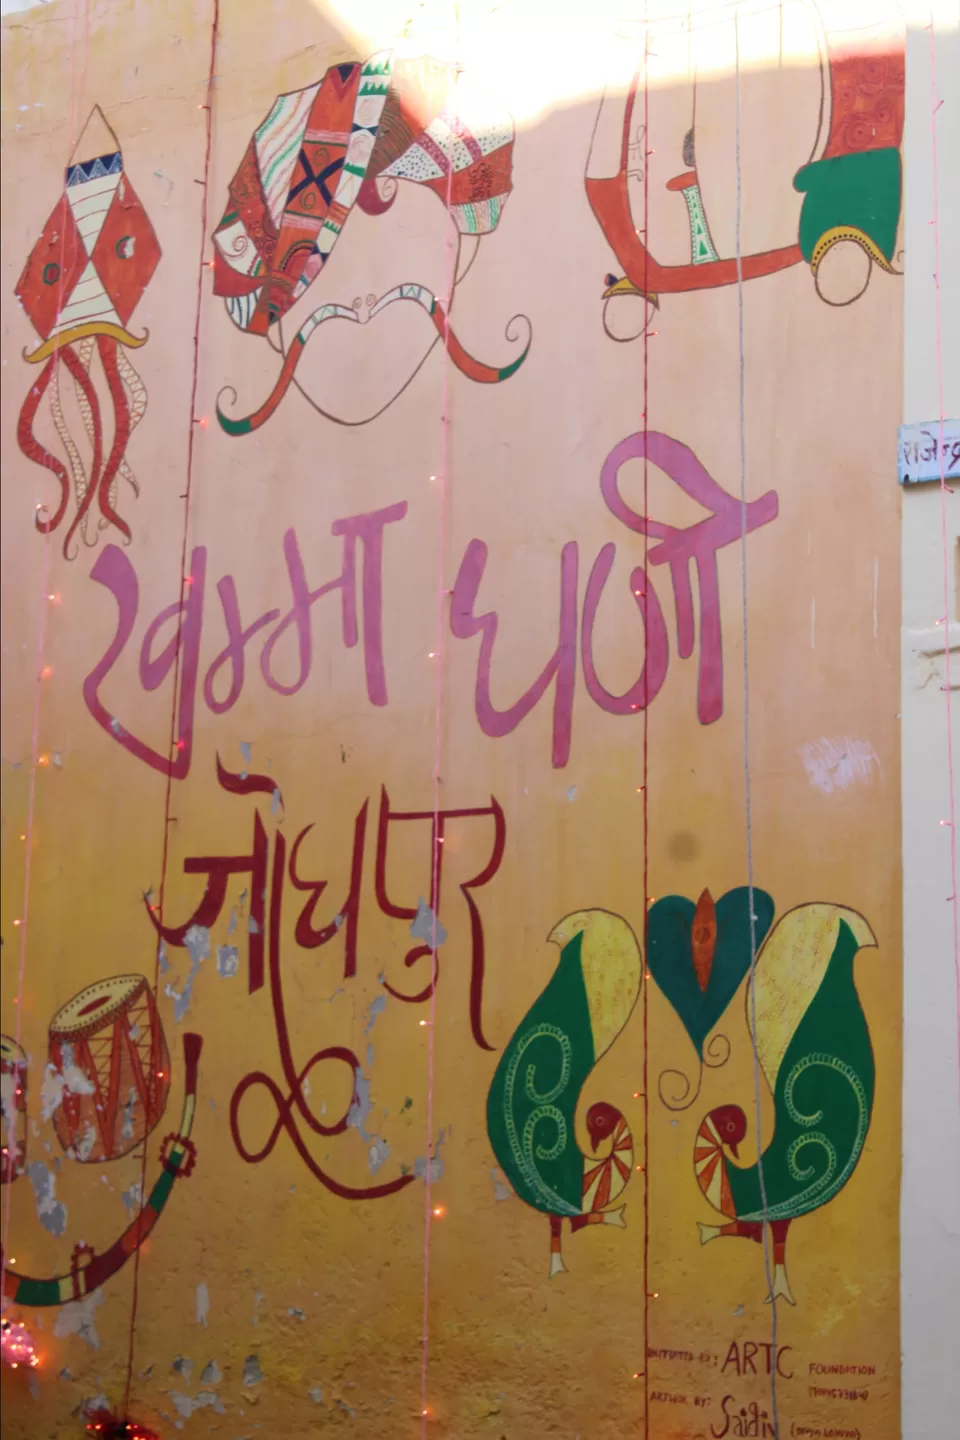 खम्मा घणी
जोधपुर
राजेन्द्र
INITIATED BY: ARTC FOUNDATION
ARTWORK BY: